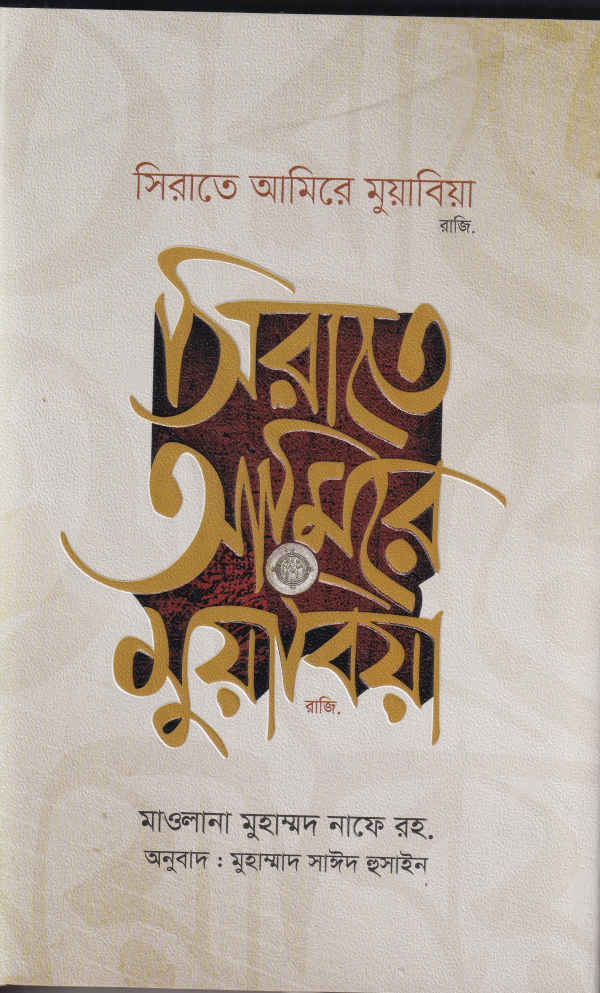 সিরাতে আমিরে মুয়াবিয়া
রাজি.
সিরাতে
আমিরে
মুয়াবিয়া
রাজি.
মাওলানা মুহাম্মদ নাফে রহ.
অনুবাদ : মুহাম্মাদ সাঈদ হুসাইন